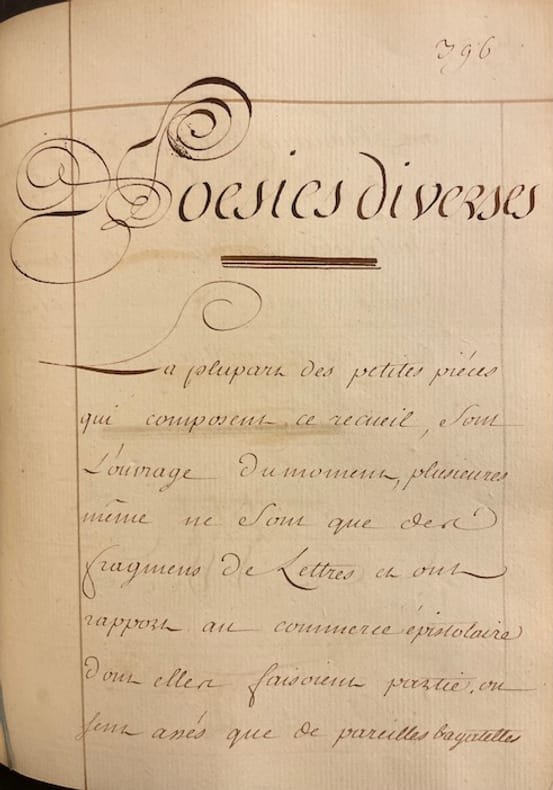 396
Poesies diverses
La plupart des petites piéces
qui composent ce recueil, Sont
L'ouvrage du moment, plusieures
même ne Sont que des
fragmens de Lettres et ont
rapport au commerce épistolaire
Dont elles faisoient partie. on
sent assés que de pareilles bagatelles